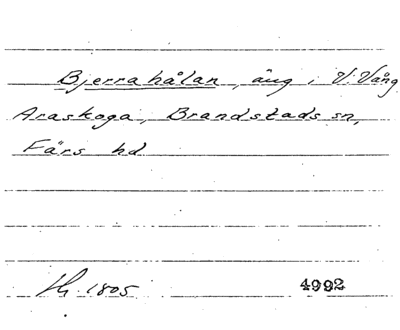 Bjerrahålan, äng i V. Vång
Araskoga, Brandstads sn,
Färs hd
1805 4992